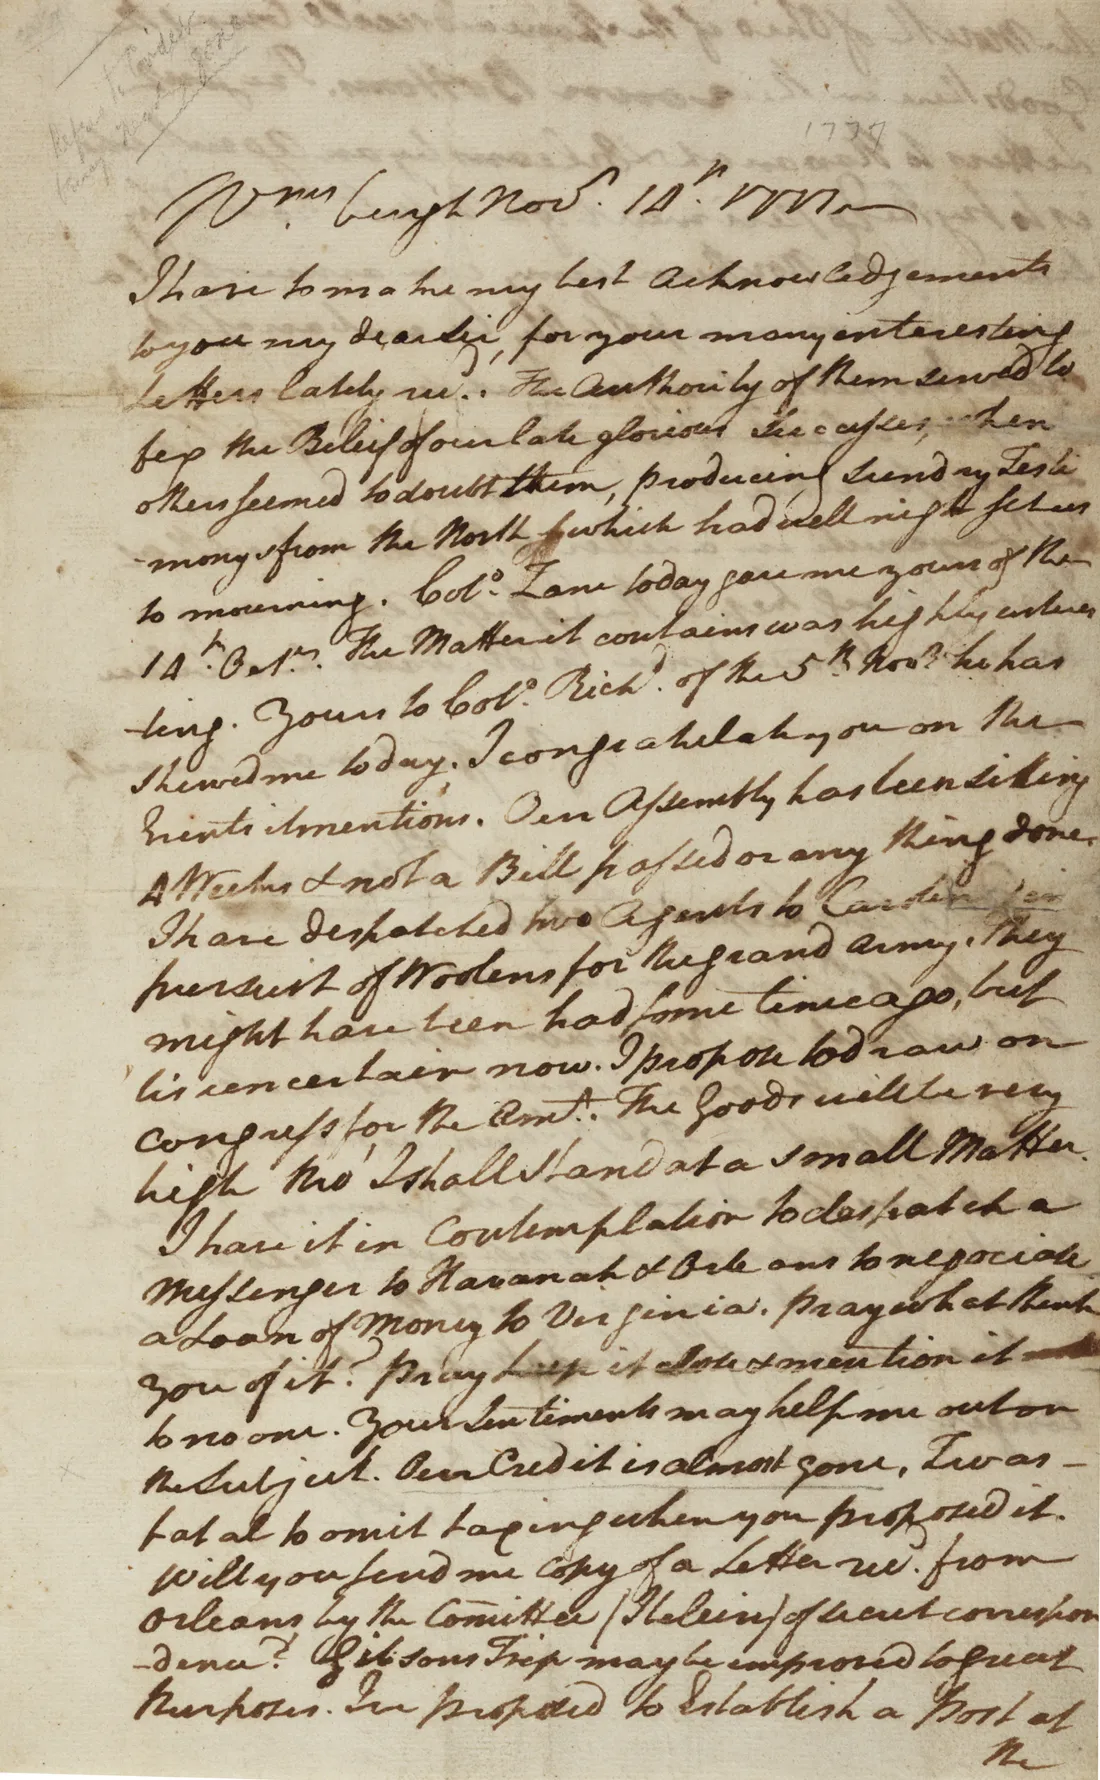 1777
Wms burgh Novr. 14th. 1777
I have to make my best Acknowledgements
to you my dear Sir, for your many interesting
Letters lately recd.. The Authority of them served to
fex the Belief of our late glorious Successes, when
others seemed to doubt them, producing sundry Testi
-monys from the North which had well nigh set us
to mourning. Colo. Zane today gave me yours of the
14th. Octr. The Matter it contains was highly interes
-ting. Yours to Colo. Richd. of the 5th Novr he has
shewed me today. I congratulate you on the
Events it mentions. Our Assembly has been sitting
4 Weeks & not a Bill passed or any thing done.
I have despatched two Agents to in
pursuit of Woolens for the grand Army. They
might have been had some time ago, but
tis uncertain now. I propose to draw on
Congress for the Amt.. The Goods will be very
high tho' I shall stand at a small Matter.
I have it in Contemplation to despatch a
Messenger to Havanah & Orleans to negociate
a Loan of Money to Virginia. Pray what think
you of it? Pray keep it close & mention it
to no one. Your Sentiments may help me out on
the Subject. Our Credit is almost gone, Twas
fatal to omit taxing when you proposed it.
Will you send me Copy of a Letter recd. from
Orleans by the Comittee (I beleive) of secret correspon
-dence? Gibsons Trip may be improved to great
Purposes. Ive proposed to Establish a Post at
the